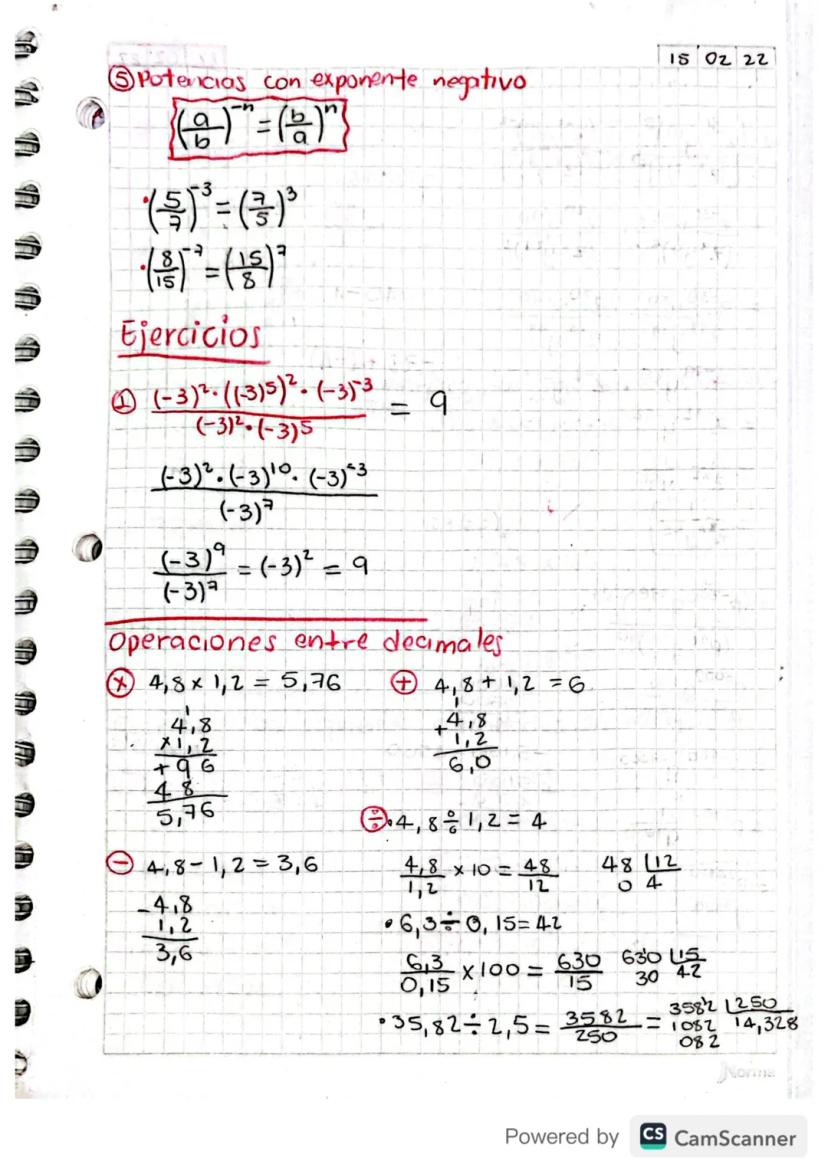 15 02 22
⑤ Potencias con exponente negativo
(a/b)^-n = (b/a)^n
• (5/7)^-3 = (7/5)^3
• (8/15)^-7 = (15/8)^7
Ejercicios
① (-3)^2 · ((-3)^5)^2 · (-3)^-3 / (-3)^2 · (-3)^5 = 9
(-3)^2 · (-3)^10 · (-3)^-3 / (-3)^7
(-3)^9 / (-3)^7 = (-3)^2 = 9
Operaciones entre decimales
ⓧ 4,8 x 1,2 = 5,76
1
4,8
x1,2
+96
48
5,76
⊕ 4,8 + 1,2 = 6
1
+4,8
1,2
6,0
⊖ 4,8 - 1,2 = 3,6
-4,8
1,2
3,6
÷ • 4,8 ÷ 1,2 = 4
4,8/1,2 x 10 = 48/12
48 | 12
0 4
• 6,3 ÷ 0,15 = 42
6,3/0,15 x 100 = 630/15
630 | 15
30 42
• 35,82 ÷ 2,5 = 3582/250 =
3582 | 250
1082 14,328
082
Norma
Powered by CS CamScanner